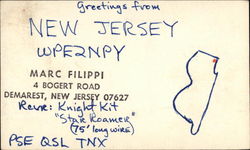 Greetings from
NEW JERSEY
WPE2NPY
MARC FILIPPI
4 BOGERT ROAD
DEMAREST, NEW JERSEY 07627
Rcvr: Knight Kit
"Star Roamer"
(75' long wire)
PSE QSL TNX